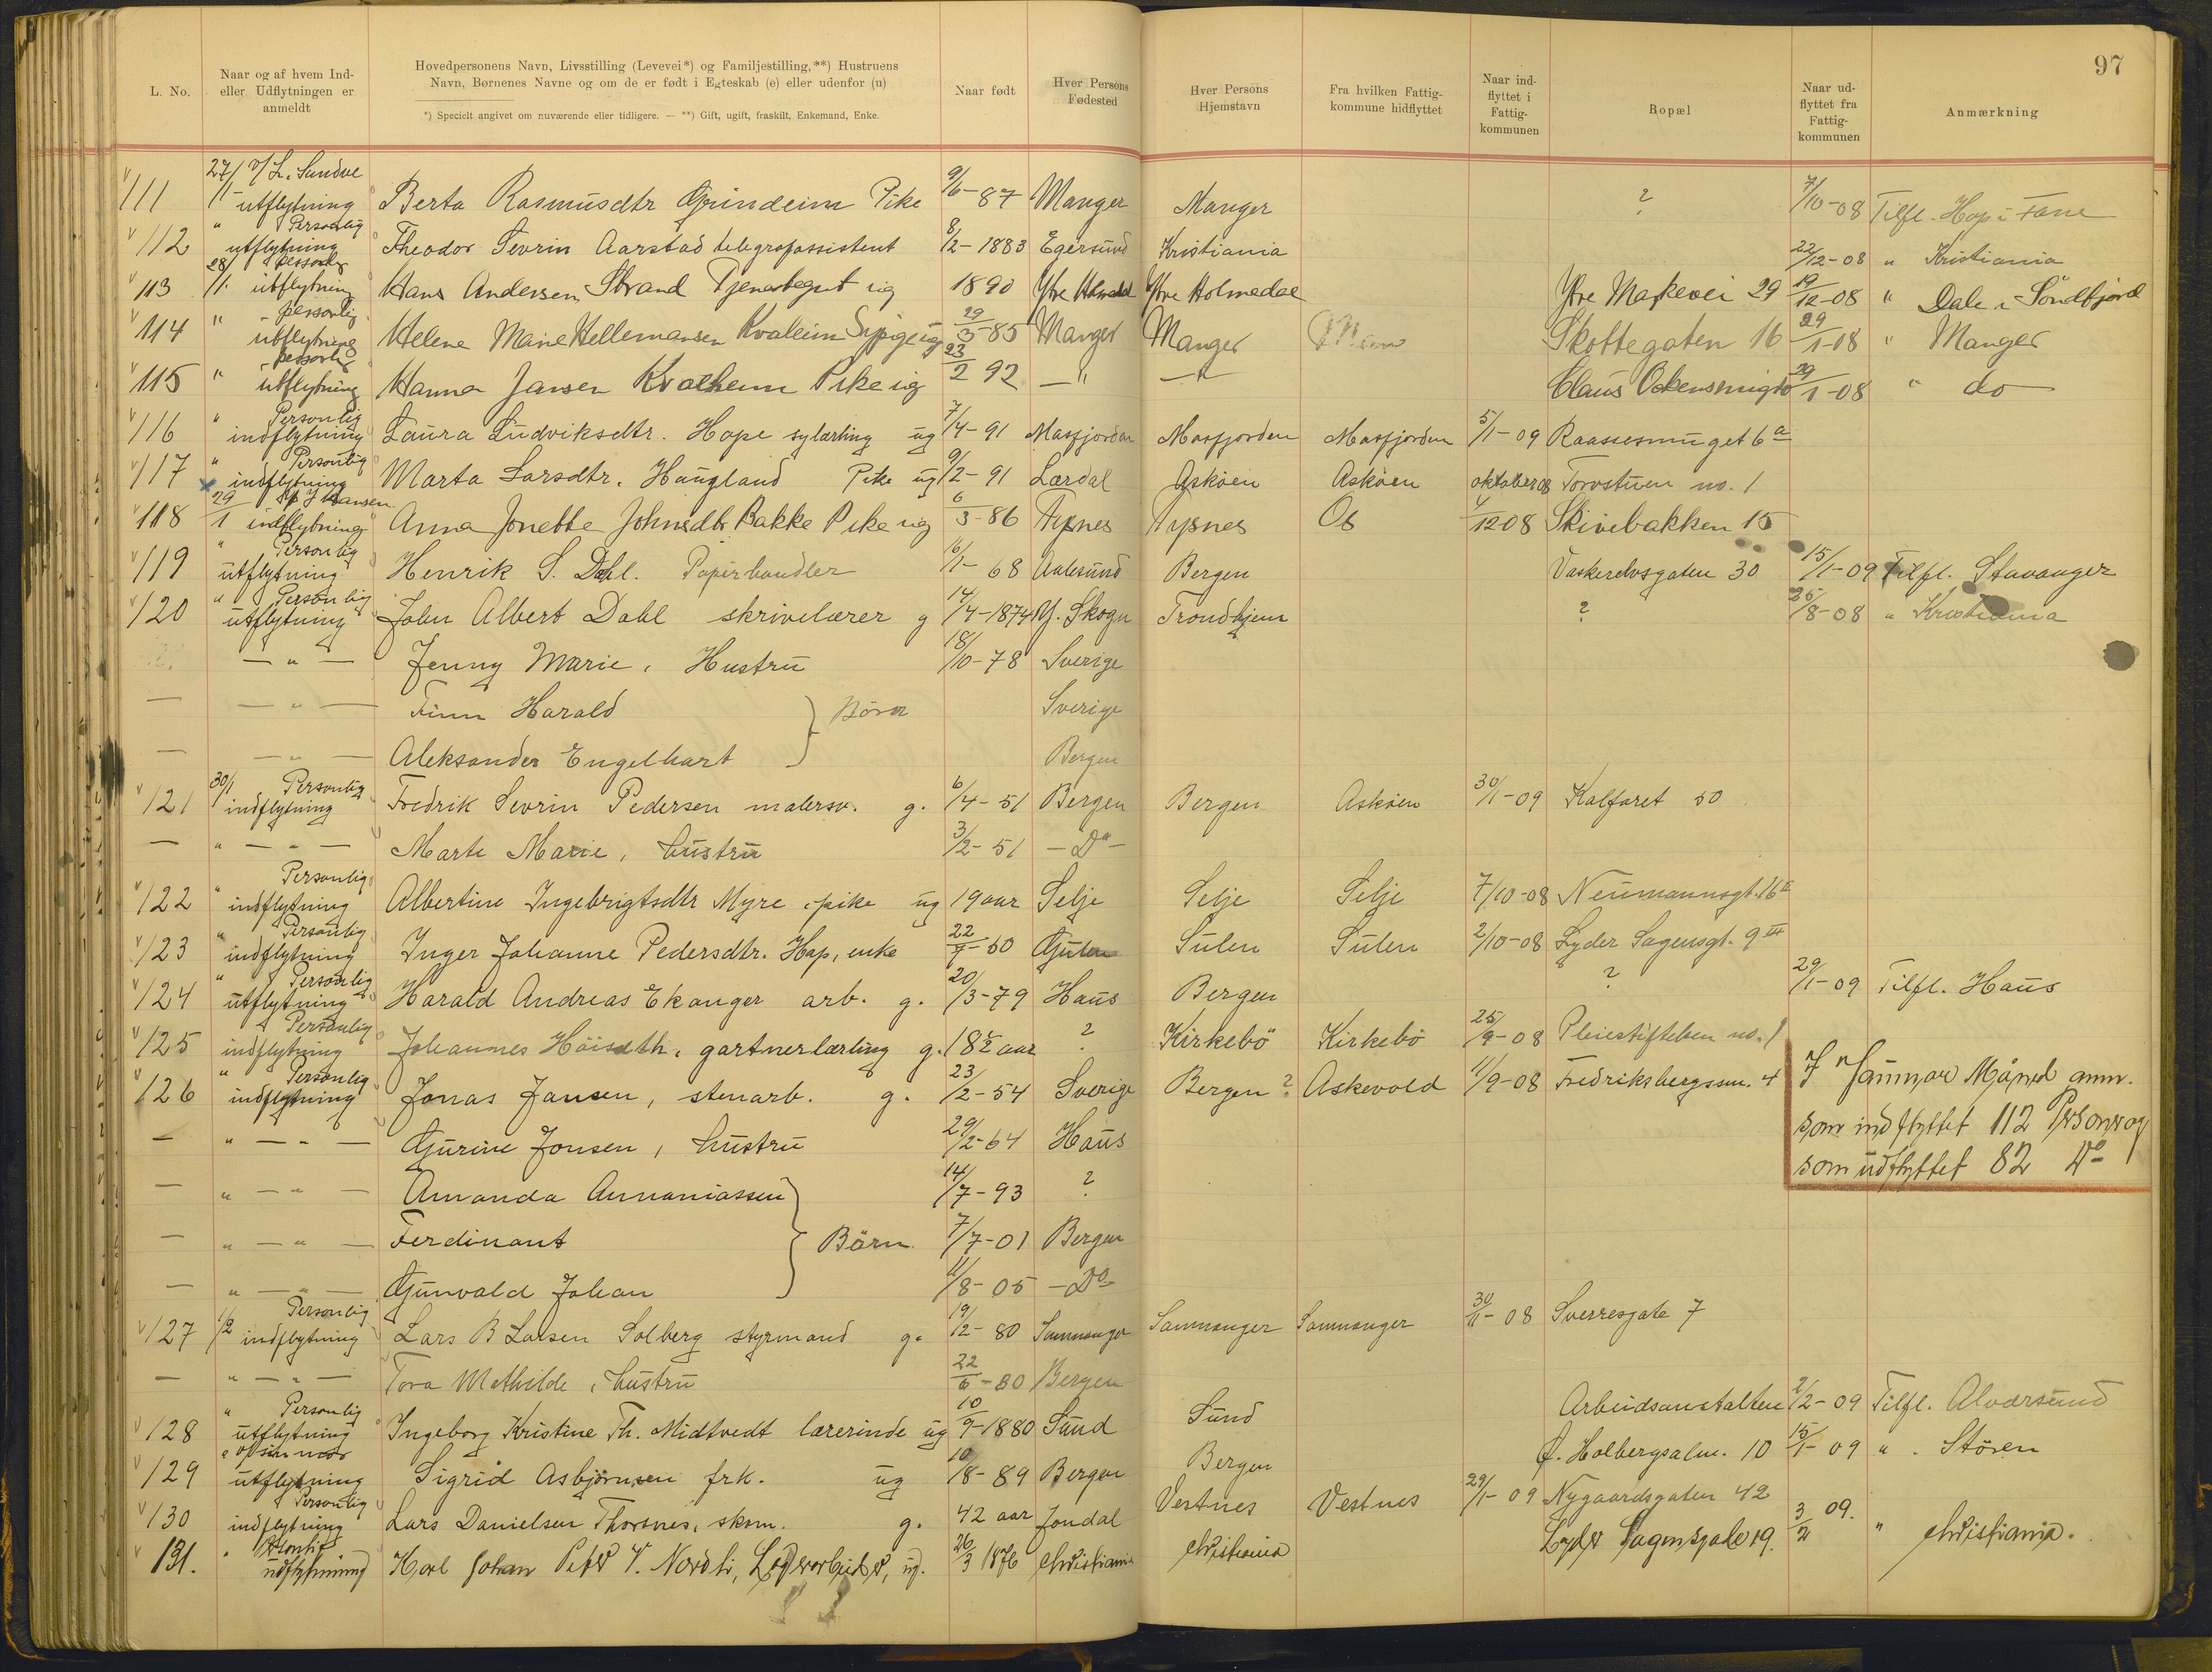 97
L. No.
Naar og af hvem Ind- eller Udflytningen er anmeldt
Hovedpersonens Navn, Livsstilling (Levevei*) og Familjestilling,**) Hustruens Navn, Børnenes Navne og om de er født i Egteskab (e) eller udenfor (u)
*) Specielt angivet om nuværende eller tidligere. — **) Gift, ugift, fraskilt, Enkemand, Enke.
Naar født
Hver Persons Fødested
Hver Persons Hjemstavn
Fra hvilken Fattig- kommune hidflyttet
Naar ind- flyttet i Fattig- kommunen
Bopæl
Naar ud- flyttet fra Fattig- kommunen
Anmærkning
111 27/1 utflytning Berta Rasmusdtr Grindeim Pike 9/6-87 Manger Manger ? 7/10-08 Tilfl. Hop i Fane
112 " Personlig utflytning Theodor Sevrin Aarstad telegrafassistent 8/2-1883 Egersund Kristiania 22/12-08 " Kristiania
113 28/1 personlig utflytning Hans Andersen Strand Tjenestegut ug 1890 Ytre Holmedal Ytre Holmedal Ytre Markevei 29 19/12-08 " Dale i Söndfjord
114 " personlig utflytning Helene Marie Hellemansen Kvaleim Sypige ug 29/3-85 Manger Manger Man Skottegaten 16 29/1-08 " Manger
115 " personlig utflytning Hanna Jansen Kvalheim Pike ug 23/2 92 — " — " Claus Ockensmug 10 29/1-08 " do
116 " Personlig indflytning Laura Ludviksdtr. Hope sylærling ug 7/4-91 Masfjorden Masfjorden Masfjorden 5/1-09 Raassesmuget 6a
117 " Personlig indflytning Marta Larsdtr. Haugland Pike ug 9/2-91 Lærdal Askøen Askøen oktober 08 Torvstuen no. 1
118 29/1 Hansen indflytning Anna Jonette Johnsdtr Bakke Pike ug 6/3-86 Tysnes Tysnes Os 4/12 08 Skivebakken 15
119 " Personlig utflytning Henrik S. Dahl. Papirhandler 16/1-68 Aalesund Bergen Vaskerelvsgaten 30 15/1-09 Tilfl. Stavanger
120 " Personlig utflytning John Albert Dahl skrivelærer g 14/4-1874 Y. Skogn Trondhjem ? 25/8-08 " Kristiania
— " — Jenny Marie, Hustru 18/10-78 Sverige
— — " — Finn Harald } Börn Sverige
— — " — Aleksander Engelhart Bergen
121 30/1 Personlig indflytning Fredrik Sevrin Pedersen malersv. g. 6/4-51 Bergen Bergen Askøen 30/1-09 Kalfaret 50
— " — " — Marte Marie, hustru 3/2-51 — Do —
122 " Personlig indflytning Albertine Ingebrigtsdtr Myre, pike ug 19 aar Selje Selje Selje 7/10-08 Neumannsgt. 16
123 " Personlig indflytning Inger Johanne Pedersdtr. Hop, enke 22/9-50 Gulen Sulen Sulen 2/10-08 Lyder Sagensgt. 9 III
124 " Personlig utflytning Harald Andreas Ekanger arb. g. 20/3-79 Haus Bergen ? 29/1-09 Tilfl. Haus
125 Personlig indflytning Johannes Höiseth, gartnerlærling g. 18½ aar ? Kirkebö Kirkebö 25/9-08 Pleiestiftelsen no. 1
126 " Personlig indflytning Jonas Jansen, stenarb. g. 23/2-54 Sverige Bergen? Askevold 11/9-08 Fredriksbergssm. 4
I Januar Måned anm.
som indflyttet 112 Personer og
som udflyttet 82 Do
— " — " — Gurine Jonsen, hustru 29/2-64 Haus
— " — " — Amanda Annaniassen 14/7-93 ?
— " — " — Ferdinant } Börn 7/7-01 Bergen
— " — " — Gunvald Johan 11/8-05 — Do
127 1/2 Personlig indflytning Lars B Larsen Solberg styrmand g. 19/12-80 Samnanger Samnanger Samnanger 30/11-08 Sverresgate 7
— " — " — Tora Mathilde, hustru 22/6-80 Bergen
128 " Personlig utflytning Ingeborg Kristine Th. Midtvedt lærerinde ug 10/9-1880 Sund Sund Arbeidsanstalten 2/2-09 Tilfl. Alversund
129 utflytning Sigrid Asbjørnsen frk. ug 10/8-89 Bergen Bergen Ø. Holbergsalm. 10 15/1-09 " . Stören
130 Personlig indflytning Lars Danielsen Thorsnes, skom. g. 42 aar Jondal Vestnes Vestnes 29/1-09 Nygaardsgaten 42
131. " Personlig udflytning Karl Johan Peter V. Nordli, ug. 26/3 1876 Christiania Christiania Lyder Sagensgate 19. 3/2 09. " Christiania.